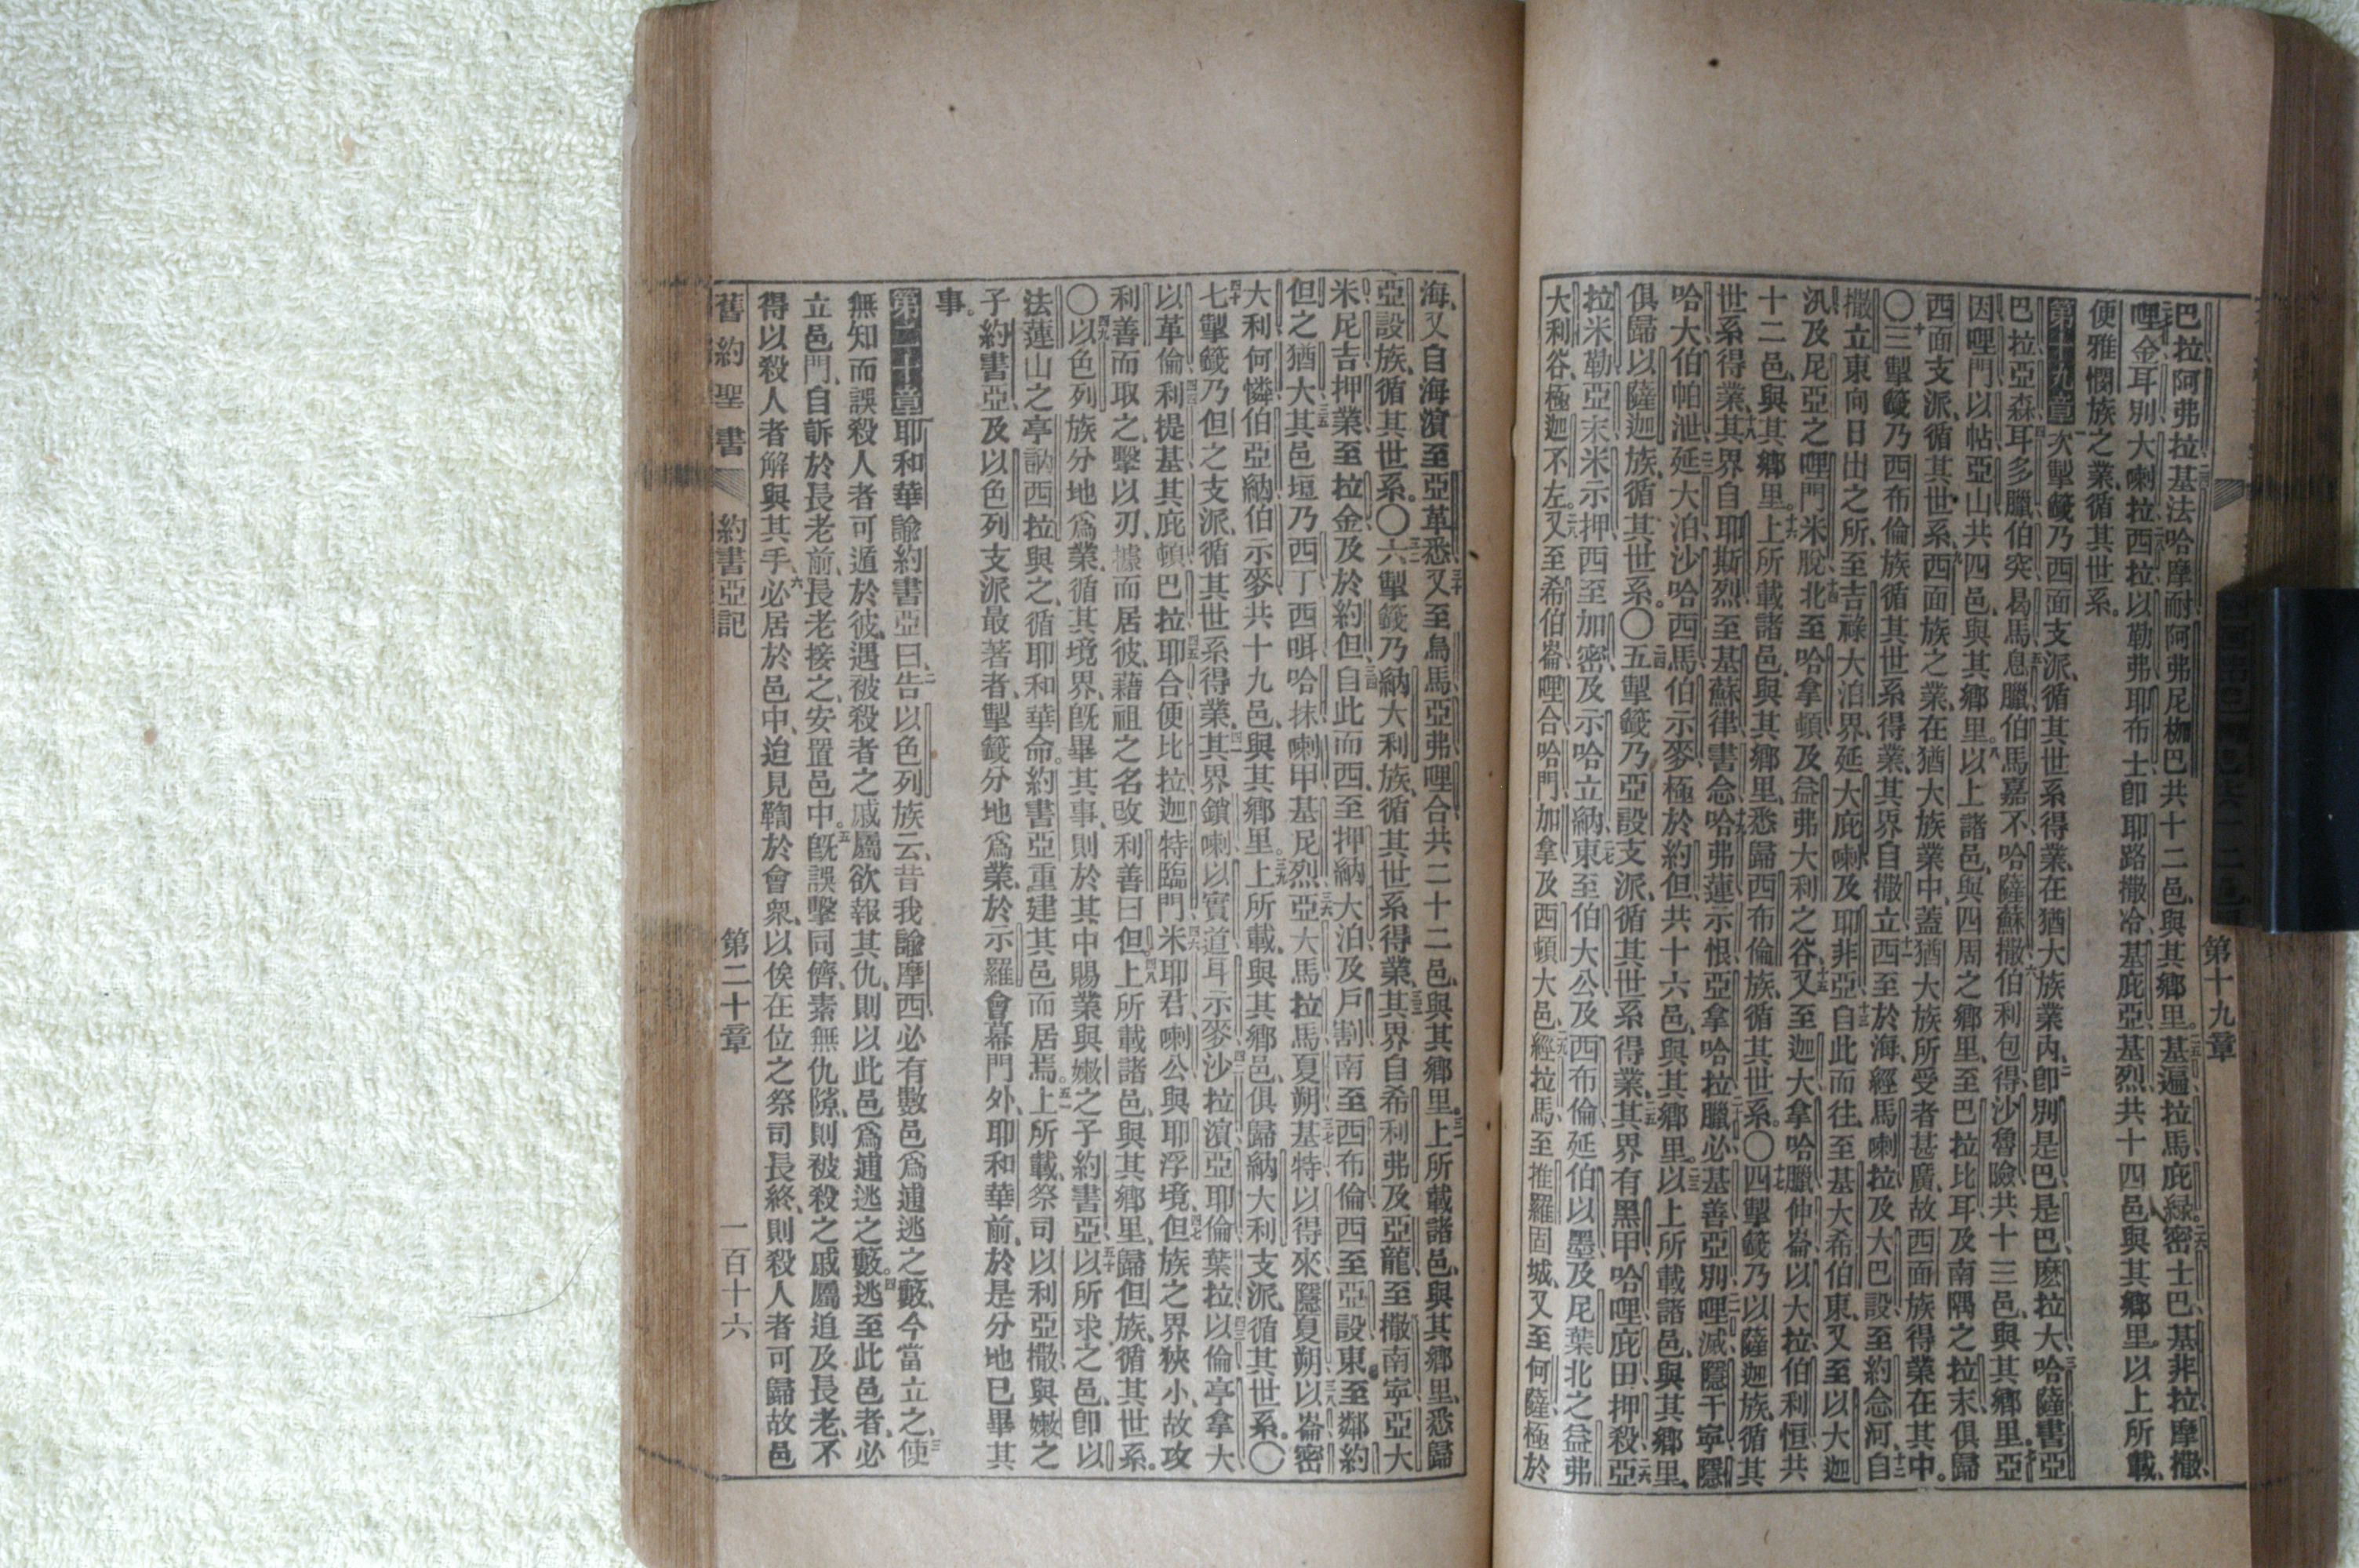 第十九章
巴拉阿弗拉基法哈摩耐阿弗尼枷巴共十二邑、與其鄉里。基遍拉馬庇緑密士巴基非拉摩撒、
哩金耳別大喇拉西拉以勒弗耶布士卽耶路撒冷基庇亞基烈共十四邑、與其鄉里、以上所載、
便雅憫族之業、循其世系。
第十九章 次掣籤乃西面支派、循其世系得業、在猶大族業內、卽別是巴是巴麽拉大哈薩書亞
巴拉亞森耳多臘伯突曷馬息臘伯馬嘉不哈薩蘇撒伯利包得沙魯險共十三邑、與其鄉里。亞
因哩門以帖亞山共四邑、與其鄉里。以上諸邑、與四周之鄉里、至巴拉比耳及南隅之拉末、俱歸
西面支派、循其世系、西面族之業、在猶大族業中、蓋猶大族所受者甚廣、故西面族得業在其中。
〇三掣籤乃西布倫族、循其世系得業、其界自撒立西至於海、經馬喇拉及大巴設至約念河、自
撒立東向日出之所、至吉祿大泊界、延大庇喇及耶非亞、自此而往、至基大希伯東、又至以大迦
汛及尼亞之哩門米脫、北至哈拿頓、及益弗大利之谷、又至迦大拿哈臘伸崙以大拉伯利恒共
十二邑、與其鄉里。上所載諸邑、與其鄉里、悉歸西布倫族、循其世系。〇四掣籤乃以薩迦族、循其
世系得業、其界自耶斯烈至基蘇律書念哈弗蓮示恨亞拿哈拉臘必基善亞別哩滅隱干寧隱
哈大伯帕泄、延大泊沙哈西馬伯示麥、極於約但、共十六邑、與其鄉里。以上所載諸邑、與其鄉里、
俱歸以薩迦族、循其世系。〇五掣籤乃亞設支派、循其世系得業、其界有黑甲哈哩庇田押殺亞
拉米勒亞末米示押西至加密及示哈立納、東至伯大公及西布倫延伯以墨及尼葉北之益弗
大利谷、極迦不左。又至希伯崙哩合哈門加拿及西頓大邑、經拉馬、至推羅固城、又至何薩、極於
第十九章
海、又自海濱至亞革悉、又至烏馬亞弗哩合共二十二邑、與其鄉里。上所載諸邑、與其鄉里、悉歸
亞設族、循其世系。〇六掣籤乃納大利族、循其世系得業、其界自希利弗及亞龍至撒南寧亞大
米尼吉押業至拉金及於約但、自此而西、至押納大泊及戶割、南至西布倫、西至亞設、東至鄰約
但之猶大、其邑垣乃西丁西咡哈抹喇甲基尼烈亞大馬拉馬夏朔基特以得來隱夏朔以崙密
大利何憐伯亞納伯示麥共十九邑、與其鄉里。上所載、與其鄉邑、俱歸納大利支派、循其世系。〇
七掣籤乃但之支派、循其世系得業、其界鎖喇以實道耳示麥沙拉濱亞耶倫葉拉以倫亭拿大
以革倫利提基其庇頓巴拉耶合便比拉迦特臨門米耶君喇公與耶浮境、但族之界狹小、故攻
利善而取之、擊以刃、據而居彼、藉祖之名、改利善曰但。上所載諸邑、與其鄉里、歸但族、循其世系。
〇以色列族分地爲業、循其境界、旣畢其事、則於其中賜業與嫩之子約書亞、以所求之邑、卽以
法蓮山之亭訥西拉與之、循耶和華命。約書亞重建其邑而居焉。上所載、祭司以利亞撒、與嫩之
子約書亞、及以色列支派最著者、掣籤分地爲業、於示羅會幕門外、耶和華前、於是分地已畢其
事。
第二十章 耶和華諭約書亞曰、告以色列族云、昔我諭摩西、必有數邑爲逋逃之藪、今當立之、使
無知而誤殺人者、可遁於彼、遇被殺者之戚屬、欲報其仇、則以此邑爲逋逃之藪。逃至此邑者、必
立邑門、自訴於長老前、長老接之、安置邑中。旣誤擊同儕、素無仇隙、則被殺之戚屬追及、長老不
得以殺人者解與其手、必居於邑中、迨見鞫於會衆、以俟在位之祭司長終、則殺人者可歸故邑
舊約聖書 約書亞記 第二十章 一百十六